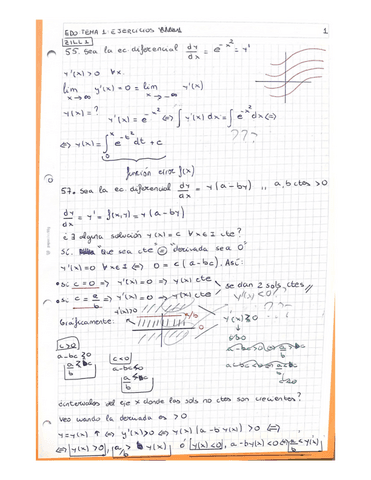 EDO TEMA 1: EJERCICIOS 1
ZILL 1
55. Sea la ec. diferencial dy/dx = e^{-x²} = y'
y'(x) > 0 ∀x.
lim x→∞ y'(x) = 0 = lim x→-∞ y'(x)
y(x) = ? y'(x) = e^{-x²} ⇔ ∫ y'(x) dx = ∫ e^{-x²} dx ⇔
???
⇔ y(x) = ∫₀ˣ e^{-t²} dt + c
función error f(x)
57. Sea la ec. diferencial dy/dx = y(a-by) ,, a,b ctes > 0
dy/dx = y' = f(x,y) = y(a-by)
¿∃ alguna solución y(x) = c ∀x∈I cte?
Sí. "que sea cte" = "derivada sea 0"
y'(x) = 0 ∀x∈I ⇔ 0 = c(a-bc). Así:
• Si c=0 ⇒ y'(x) = 0 ⇒ y(x) cte
• Si c = a/b ⇒ y'(x) = 0 ⇒ y(x) cte
se dan 2 sols, ctes
Gráficamente:
c>0
c<0
¿intervalos del eje x donde las sols no ctes son crecientes?
Veo cuando la derivada es > 0
y = y(x) ↑ ⇔ y'(x) > 0 ⇔ y(x)(a-by(x)) > 0 ⇔
⇔ y(x) > 0, a/b > y(x) ó y(x) < 0, a-by(x) < 0 ⇔ a/b < y(x)